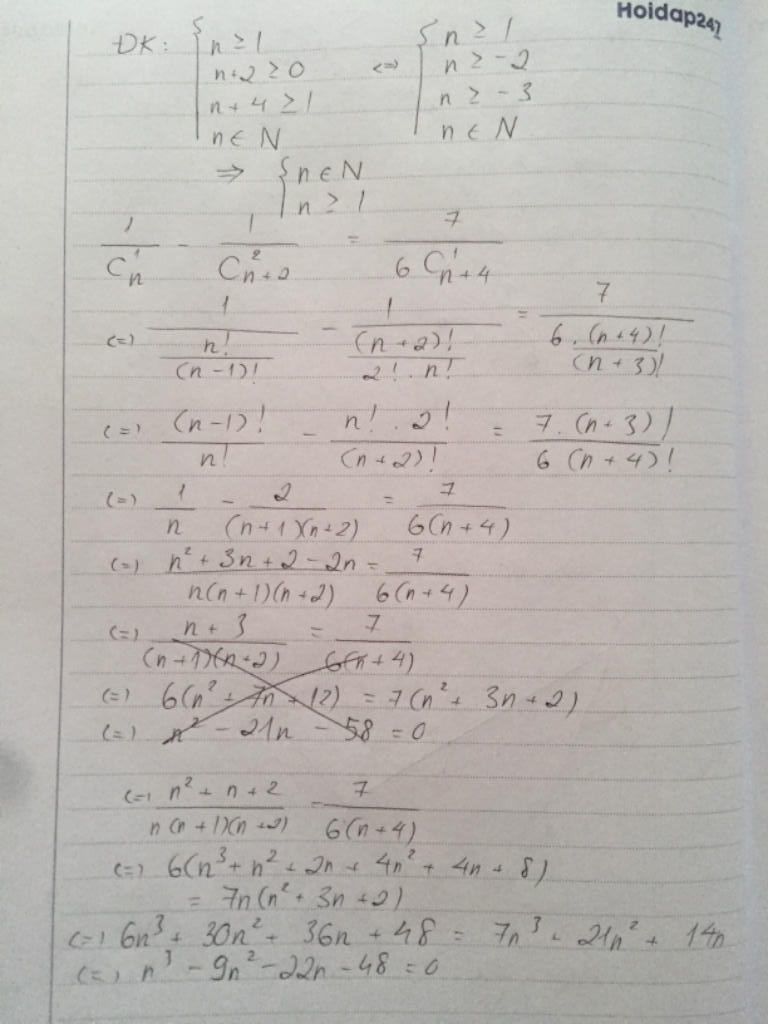 Hoidap247
ĐK: { n ≥ 1 { n ≥ 1
n+2 ≥ 0 <=> n ≥ -2
n + 4 ≥ 1 n ≥ -3
n ∈ N n ∈ N
=> { n ∈ N
n ≥ 1
1/C_n^1 - 1/C_{n+2}^2 = 7/(6 C_{n+4}^1)
(=) 1/(n!/(n-1)!) - 1/((n+2)!/(2! . n!)) = 7/(6 . (n+4)!/(n+3)!)
(=) (n-1)!/n! - n! . 2!/(n+2)! = 7. (n+3)!/(6 (n+4)!)
(=) 1/n - 2/((n+1)(n+2)) = 7/(6(n+4))
(=) (n² + 3n + 2 - 2n)/(n(n+1)(n+2)) = 7/(6(n+4))
(=) (n + 3)/((n+1)(n+2)) = 7/(6(n+4))
(=) 6(n² + 7n + 12) = 7(n² + 3n + 2)
(=) n² - 21n - 58 = 0
(=) (n² + n + 2)/(n(n+1)(n+2)) = 7/(6(n+4))
(=) 6(n³ + n² + 2n + 4n² + 4n + 8)
= 7n(n² + 3n + 2)
(=) 6n³ + 30n² + 36n + 48 = 7n³ + 21n² + 14n
(=) n³ - 9n² - 22n - 48 = 0